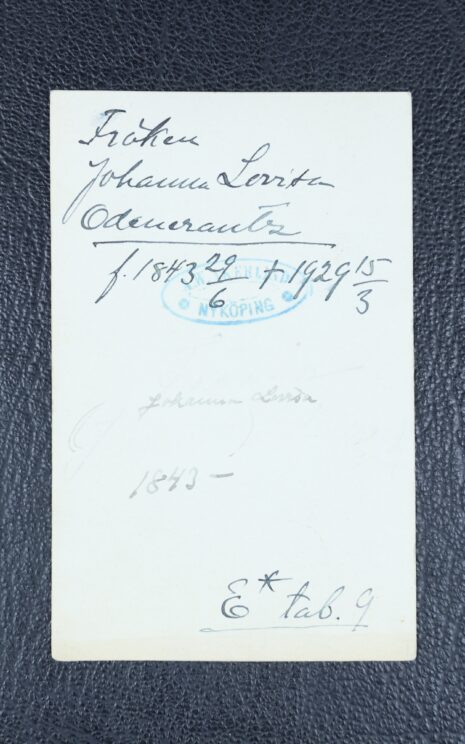 Fröken
Johanna Lovisa
Odencrantz
f. 1843 29/6 † 1929 15/3
NYKÖPING
Johanna Lovisa
1843 –
E* tab. 9